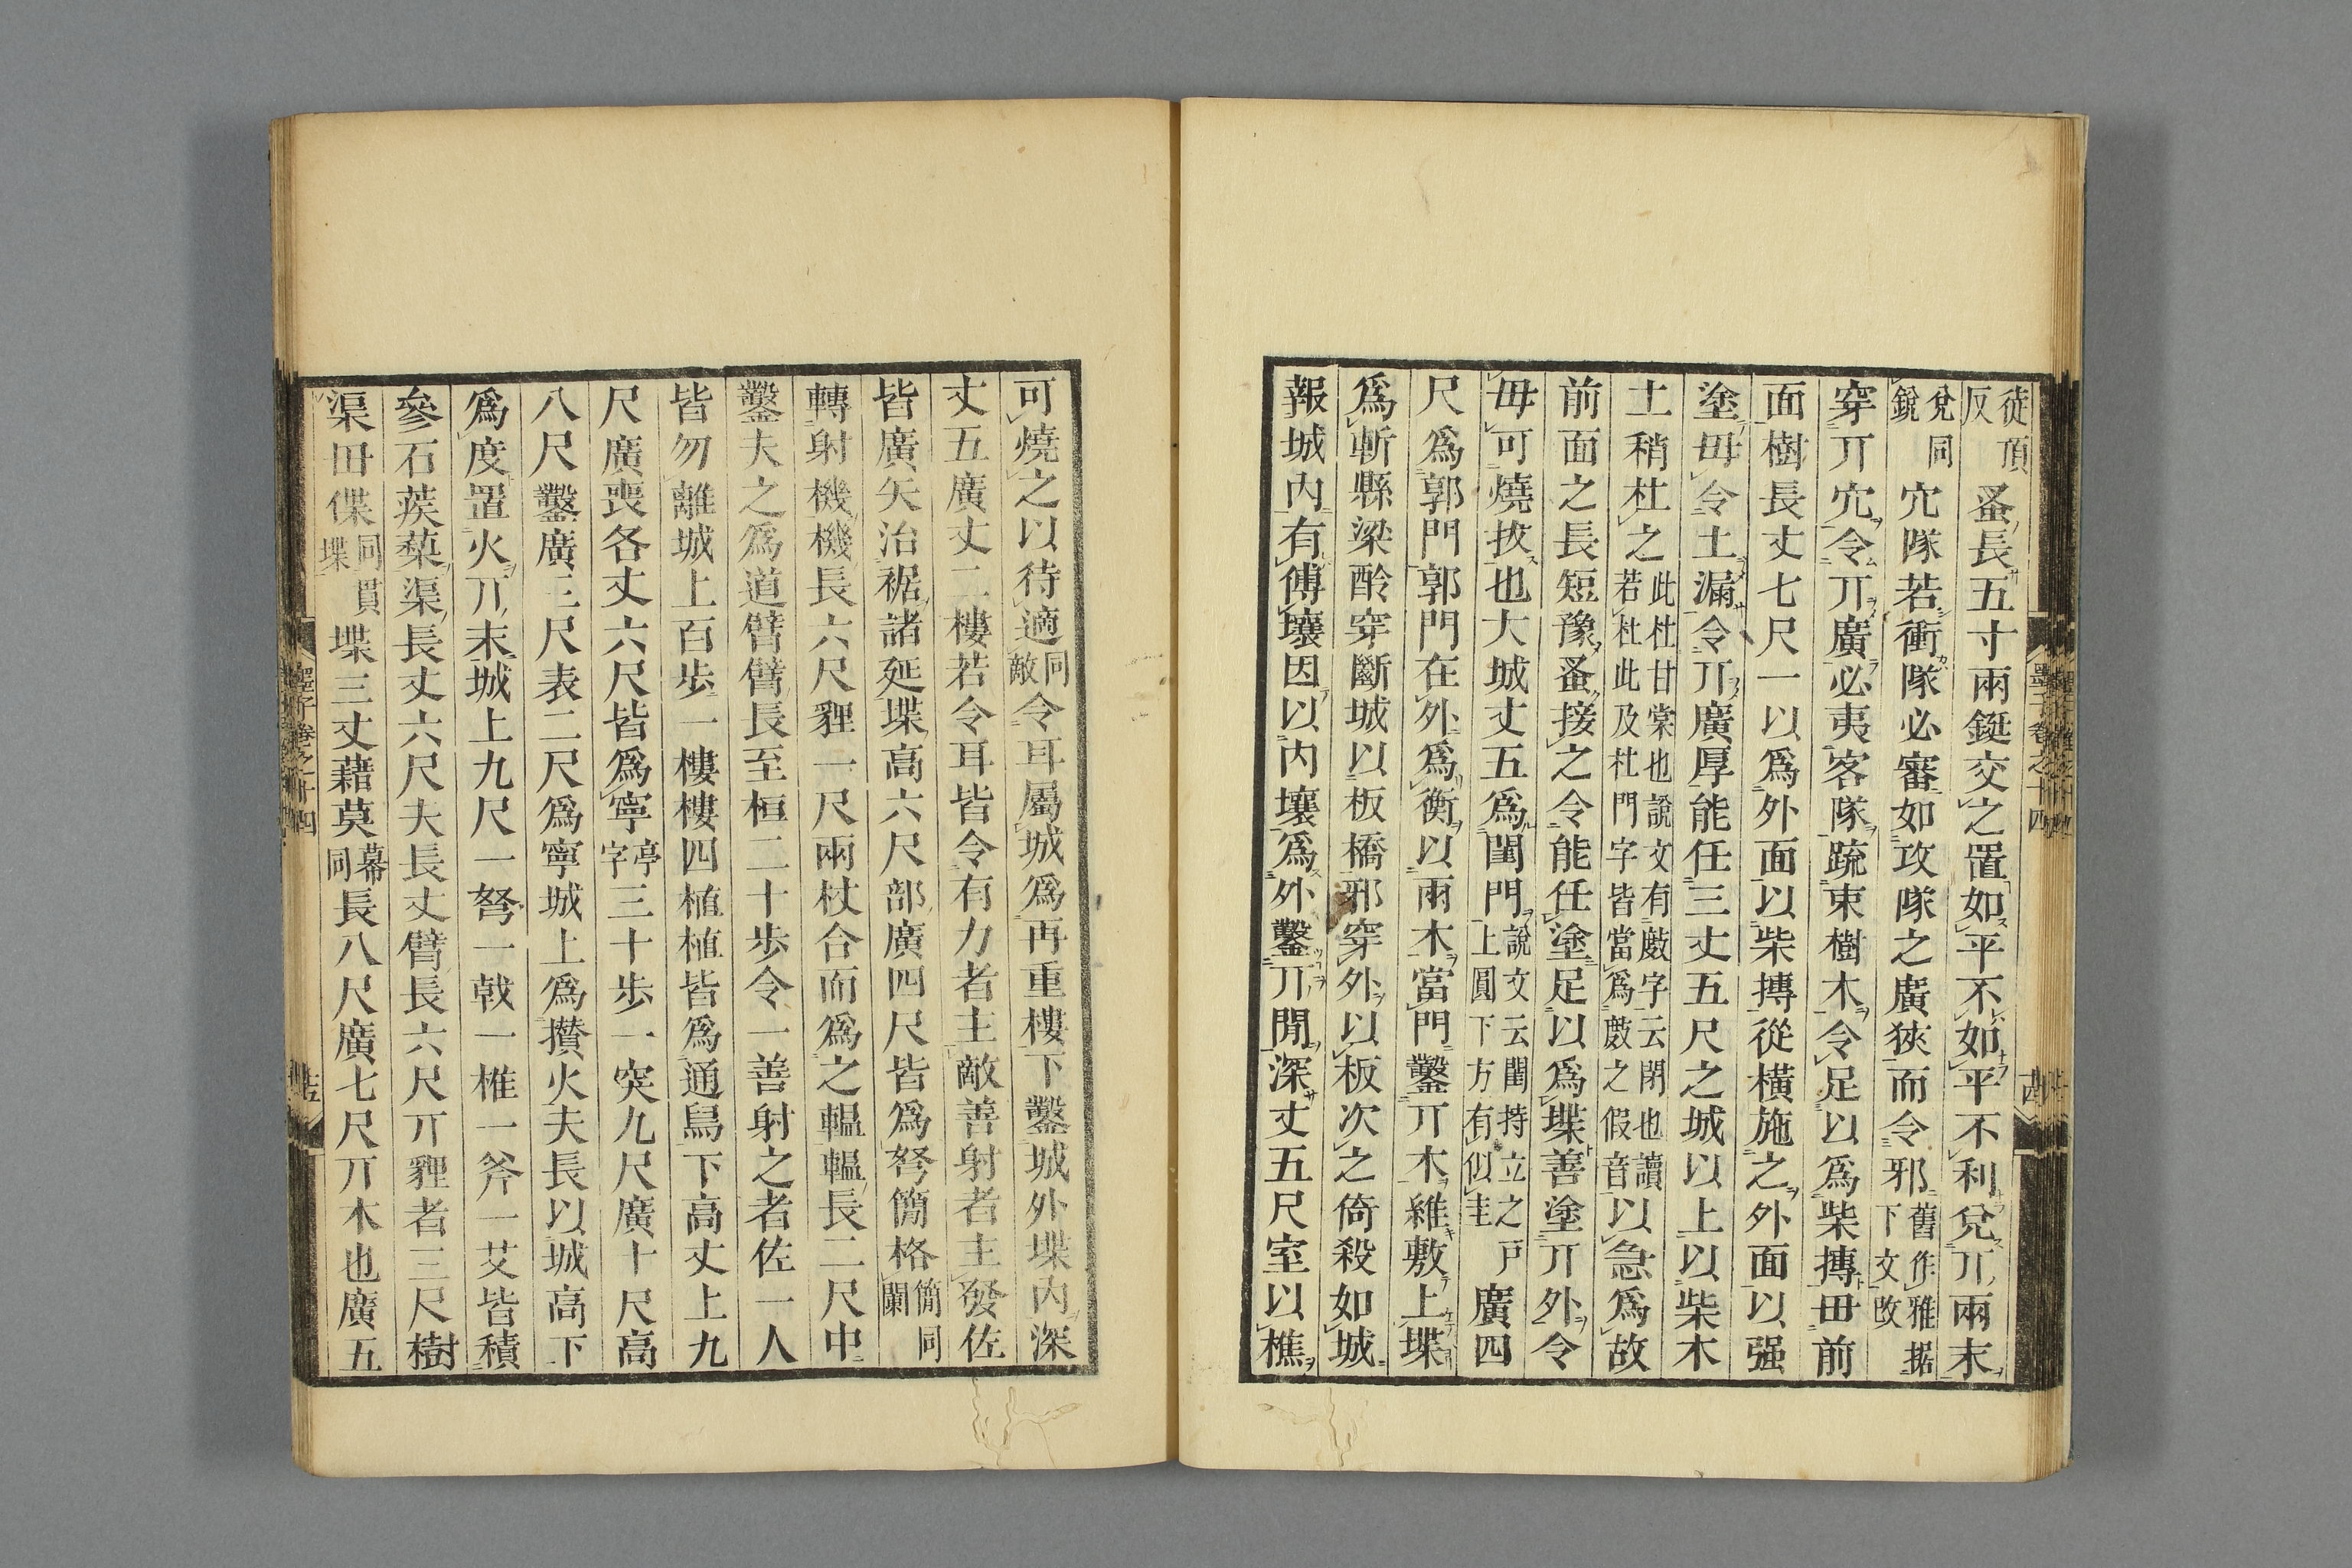 徒頂反蚤長五寸兩鋌交之置如平不如平不利兌丌兩末
兌同銳穴隊若衝隊必審如攻隊之廣狹而令邪舊作雅据下文改
穿丌穴令丌廣必夷客隊疏束樹木令足以爲柴摶毌前
面樹長丈七尺一以爲外面以柴摶從橫施之外面以强
塗毋令土漏令丌廣厚能任三丈五尺之城以上以柴木
土稍杜之此杜甘棠也說文有敼字云閉也讀若杜此及杜門字皆當爲敼之假音以急爲故
前面之長短豫蚤接之令能任塗足以爲堞善塗丌外令
毋可燒拔也大城丈五爲閨門說文云閨持立之戸上圓下方有似圭廣四
尺爲郭門郭門在外爲衡以兩木當門鑿丌木維敷上堞
爲斬縣梁酓穿斷城以板橋邪穿外以板次之倚殺如城
報城內有傅壤因以內壤爲外鑿丌閒深丈五尺室以樵
可燒之以待適同敵令耳屬城爲再重樓下鑿城外堞內深
丈五廣丈二樓若令耳皆令有力者主敵善射者主發佐
皆廣矢治裾諸延堞高六尺部廣四尺皆爲弩簡格簡同闌
轉射機機長六尺貍一尺兩杖合而爲之轀轀長二尺中
鑿夫之爲道臂臂長至桓二十步令一善射之者佐一人
皆勿離城上百步一樓樓四植植皆爲通舄下高丈上九
尺廣喪各丈六尺皆爲寧亭字三十步一突九尺廣十尺高
八尺鑿廣三尺表二尺爲寧城上爲攢火夫長以城高下
爲度置火丌末城上九尺一弩一戟一椎一斧一艾皆積
參石蒺蔾渠長丈六尺夫長丈臂長六尺丌貍者三尺樹
渠毌傑同貫堞堞三丈藉莫幕同長八尺廣七尺丌木也廣五
墨子卷之十四